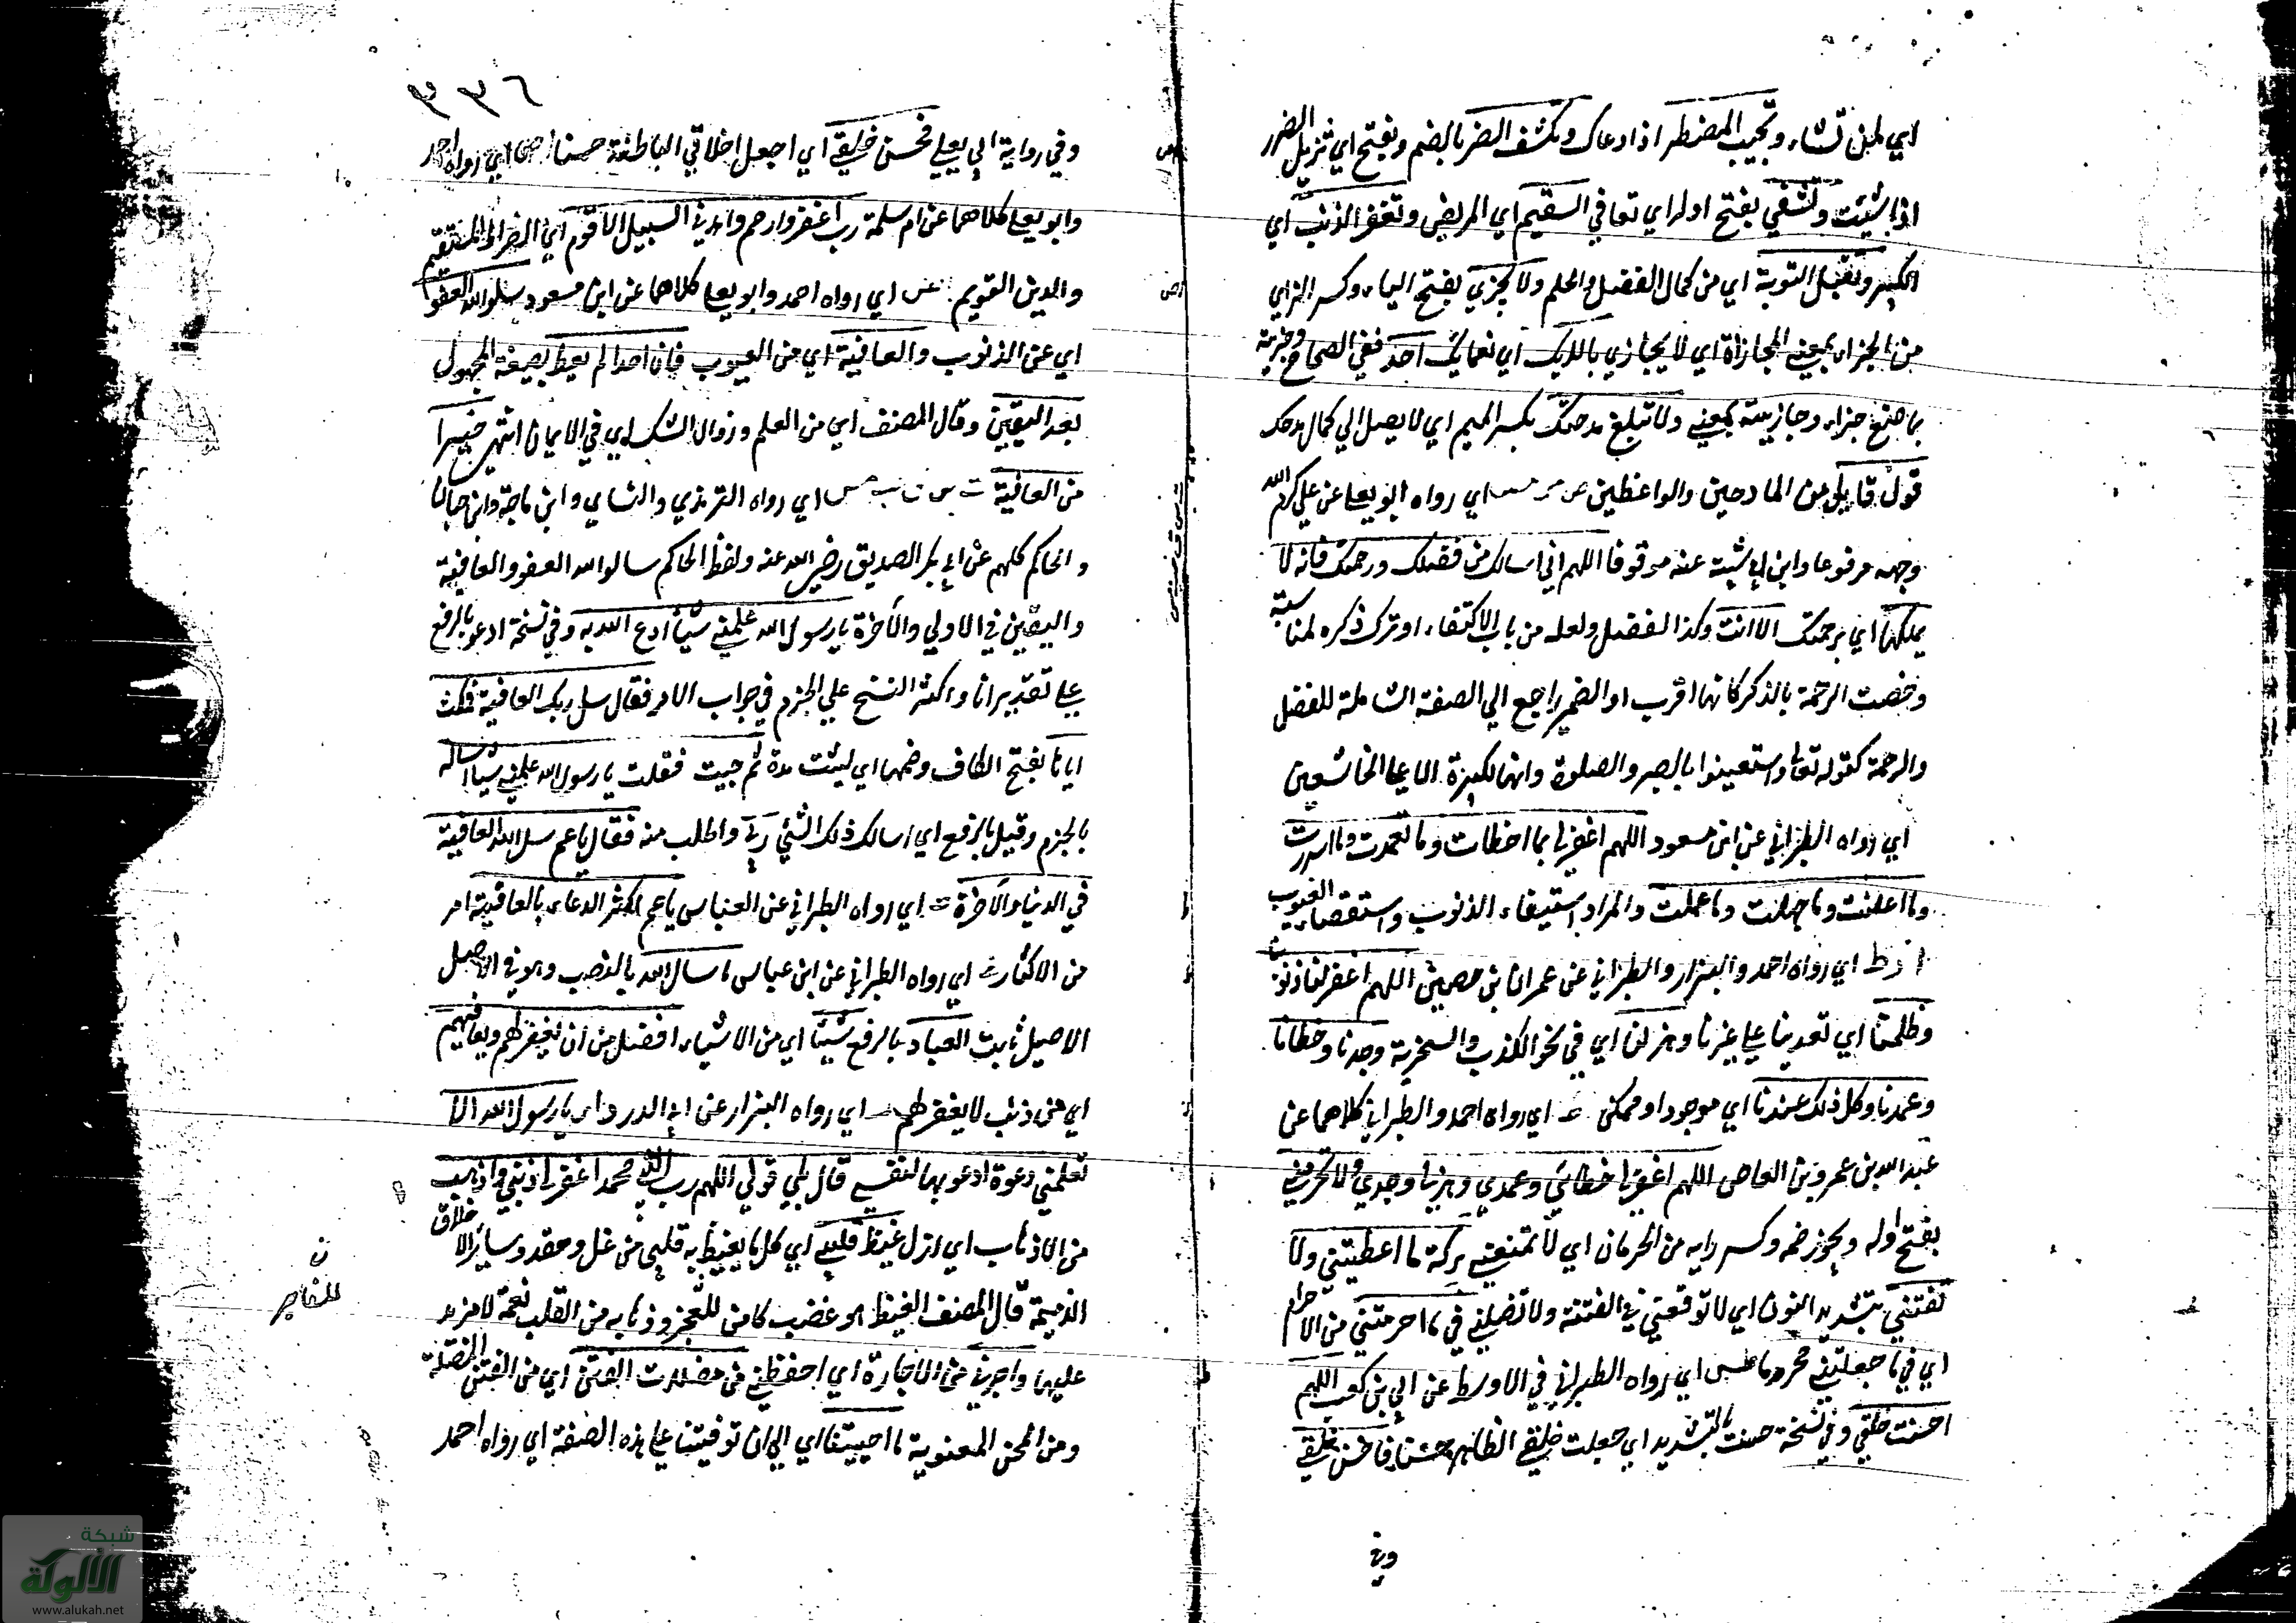 اي لمن تشاء وتجيب المضطر اذا دعاك وتكشف الضر بالضم وبفتح اي تزيل الضرر
اذا شئت وتشفي بفتح اوله اي تعافي السقيم اي المريض وتغفر الذنب اي
الكبير وتقبل التوبة اي من كمال الفضل والحلم ولا يجزي بفتح الياء وكسر الزاي
من الجزاء بمعنى المجازاة اي لا يجازي بالايك اي نعمائك احد ففي الصحاح وجزيته
بما صنع جزاء وجازيته بمعنى ولا تبلغ مدحتك بكسر الميم اي لا يصل الي كمال مدحك
قول قايل من المادحين والواعظين ص مو مص اي رواه ابو يعلى عن علي كرم الله
وجهه مرفوعا وابن ابي شيبة عنه موقوفا اللهم اني اسالك من فضلك ورحمتك فانه لا
يملكها اي برحمتك الا انت وكذا الفضل ولعله من باب الاكتفاء او ترك ذكره لمناسبة
وخصت الرحمة بالذكر كانها اقرب او الضمير راجع الي الصفة الشاملة للفضل
والرحمة كقوله تعالى واستعينوا بالصبر والصلوة وانها لكبيرة الا على الخاشعين
اي رواه الطبراني عن ابن مسعود اللهم اغفر لي ما اخطات وما تعمدت وما اسررت
وما اعلنت وما جهلت وما عملت والمراد استيفاء الذنوب واستقصاء العيوب
ا ز ط اي رواه احمد والبزار والطبراني عن عمران بن حصين اللهم اغفر لنا ذنوبنا
وظلمنا اي تعدينا على غيرنا وهزلنا اي في نحو الكذب والسخرية وجدنا وخطانا
وعمدنا وكل ذلك عندنا اي موجود او ممكن اي رواه احمد والطبراني كلاهما عن
عبد الله بن عمرو بن العاص اللهم اغفر لي خطائي وعمدي وهزلي وجدي ولا تحرمني
بفتح اوله ويجوز ضمه وكسر رايه من الحرمان اي لا تمنعني بركة ما اعطيتني ولا
تفتني بتشديد النون اي لا توقعني في الفتنة ولا تضلني في ما احرمتني من الاحرام
اي في ما جعلتني محروما طس اي رواه الطبراني في الاوسط عن ابي بن كعب اللهم
احسنت خلقي وفي نسخة حسنت بالتشديد اي جعلت خلقي الظاهر حسنا فاحسن خلقي
وفي
٣٣٦
وفي رواية ابي يعلى فحسن خلقي اي اجعل اخلاقي الباطنة حسنا اص اي رواه احمد
وابو يعلى كلاهما عن ام سلمة رب اغفر وارحم واهدني السبيل الاقوم اي الصراط المستقيم
والدين القويم اي رواه احمد وابو يعلى كلاهما عن ابن مسعود سلوا الله العفو
اي عن الذنوب والعافية اي من العيوب فان احدا لم يعط بصيغة المجهول
بعد اليقين وقال المصنف اي من العلم وزوال الشك اي في الايمان انتهى خيرا
من العافية ت س ق حب مس اي رواه الترمذي والنساي وابن ماجة وابن حبان
والحاكم كلهم عن ابي بكر الصديق رضي الله عنه ولفظ الحاكم سالوا الله العفو والعافية
واليقين في الاولي والآخرة يا رسول الله علمني شيأ ادع الله به وفي نسخة ادعو بالرفع
على تقدير انا واكثر النسخ علي الجزم في جواب الامر فقال سل ربك العافية فمكث
اياما بفتح الكاف وضمها اي لبثت مدة ثم جيت فقلت يا رسول الله علمني شيأ اساله
بالجزم وقيل بالرفع اي اسالك ذلك الشئ ربي واطلب منه فقال يا عم سل الله العافية
في الدنيا والآخرة ط اي رواه الطبراني عن العباس يا عم اكثر الدعاء بالعافية امر
من الاكثار ط اي رواه الطبراني عن ابن عباس ما سال الله بالنصب وهو في الاصل
الاصيل ثابت العباد بالرفع شيئا اي من الاشياء افضل من ان يغفر لهم ويعافيهم
اي من ذنب لا يغفر لهم اي رواه البزار عن ابي الدرداء يا رسول الله الا
تعلمني دعوة ادعو بها لنفسي قال بلي قولي اللهم رب النبي محمد اغفر لي ذنبي واذهب
من الاذهاب اي ازل غيظ قلبي اي كل ما يغيظ به قلبي من غل وحقد وساير الاخلاق
الذميمة قال المصنف الغيظ هو غضب كامن للعجز وذهابه من القلب نعمة لا مزيد
ن
للعاجز
عليها واجرني من الاجارة اي احفظني من مضلات الفتن اي من الفتن المضلة
ومن المحن المعنوية ما احييتنا اي الي ان توفيتنا على هذه الصفة اي رواه احمد
شبكة
الألوكة
www.alukah.net